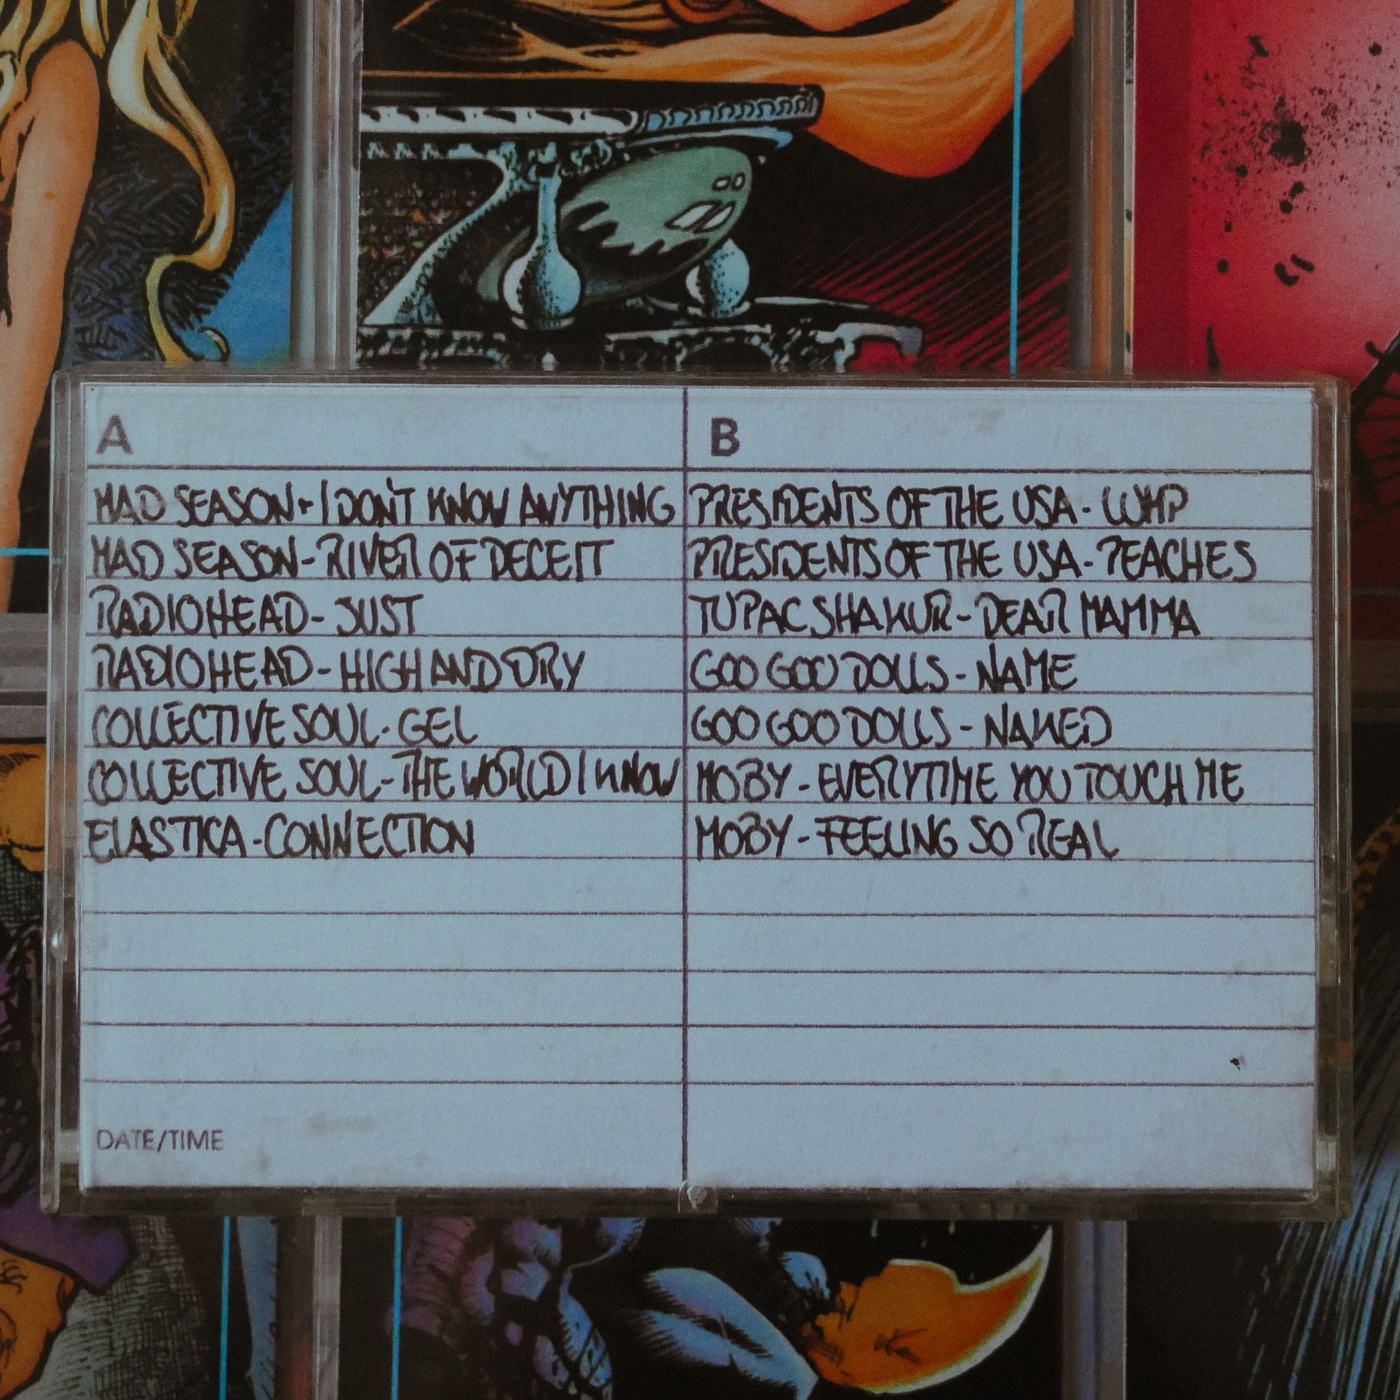 A
MAD SEASON - I DON'T KNOW ANYTHING
MAD SEASON - RIVER OF DECEIT
RADIOHEAD - JUST
RADIOHEAD - HIGH AND DRY
COLLECTIVE SOUL - GEL
COLLECTIVE SOUL - THE WORLD I KNOW
ELASTICA - CONNECTION
DATE/TIME
B
PRESIDENTS OF THE USA - LUMP
PRESIDENTS OF THE USA - PEACHES
TUPAC SHAKUR - DEAR MAMMA
GOO GOO DOLLS - NAME
GOO GOO DOLLS - NAKED
MOBY - EVERYTIME YOU TOUCH ME
MOBY - FEELING SO REAL